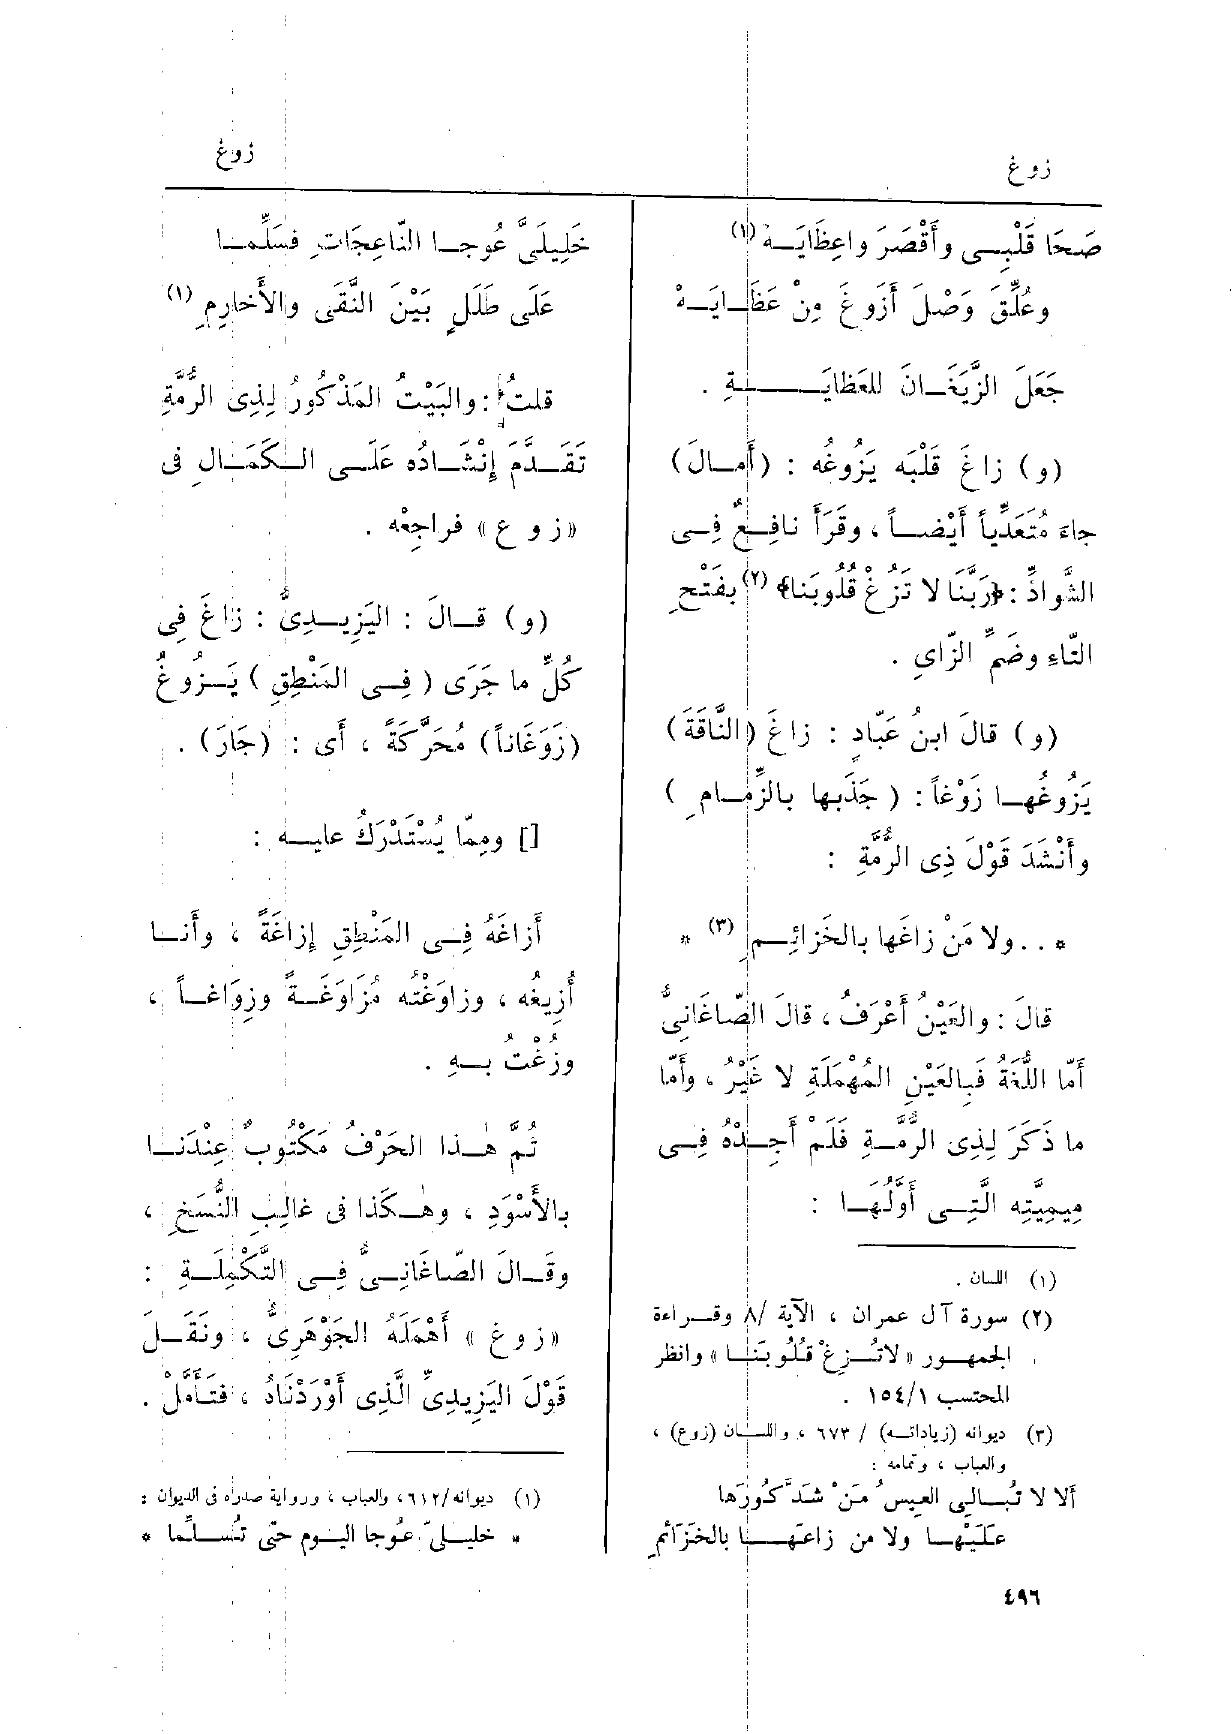 زوغ
زوغ
صَحَا قَلْبِى وأَقْصَرَ واعِظَايَهْ (١)
وعُلِّقَ وَصْلَ أَزْوَغَ مِنْ عَظَايَهْ
جَعَلَ الزَّيَغَانَ للعَظايَةِ .
(و) زاغَ قَلْبَه يَزُوغُه : (أَمالَ)
جاءَ مُتَعَدِّياً أَيْضاً ، وقَرَأَ نافِعٌ فِى
الشَّواذِّ : ﴿رَبَّنَا لا تَزُغْ قُلُوبَنا﴾ (٢) بفَتْحِ
التَّاءِ وضَمِّ الزّايِ .
(و) قالَ ابنُ عَبّادٍ : زاغَ (النَّاقَةَ)
يَزُوغُهَا زَوْغاً : (جَذَبها بالزِّمامِ)
وأَنْشَدَ قَوْلَ ذِى الرُّمَّةِ :
* . . ولا مَنْ زاغَها بالخَزائِمِ (٣) *
قالَ : والعَيْنُ أَعْرَفُ ، قالَ الصّاغَانِىُّ
أَمّا اللُّغَةُ فَبِالعَيْنِ المُهْمَلَةِ لا غَيْرُ ، وأَمّا
ما ذَكَرَ لِذِى الرُّمَّةِ فَلَمْ أَجِدْهُ فِى
مِيمِيَّتِه الَّتِى أَوَّلُهَا :
(١) اللسان .
(٢) سورة آل عمران ، الآية /٨ وقراءة
الجمهور «لا تُزِغْ قُلُوبَنَا» وانظر
المحتسب ١٥٤/١ .
(٣) ديوانه (زياداته) / ٦٧٣ ، واللسان (زوع) ،
والعباب ، وتمامه :
ألا لا تُبالِى العِيسُ مَنْ شَدَّ كُورَها
عَلَيْهَا ولا من زاعَهَا بالخَزَائمِ
٤٩٦
خَلِيلَىَّ عُوجا النّاعِجَاتِ فَسَلِّمَا
عَلَى طَلَلٍ بَيْنَ النَّقَى والأَخارِمِ (١)
قلتُ : والبَيْتُ المَذْكُورُ لِذِى الرُّمَّةِ
تَقَدَّمَ إِنْشَادُه عَلَى الكَمَالِ فى
«ز و ع» فراجِعْه .
(و) قالَ : اليَزِيدِىُّ : زاغَ فِى
كُلِّ ما جَرَى (فِى المَنْطِقِ) يَزُوغُ
(زَوَغَاناً) مُحَرَّكَةً ، أَى : (جَارَ) .
[] ومِمّا يُسْتَدْرَكُ عليه :
أَزاغَهُ فِى المَنْطِقِ إِزاغَةً ، وأَنا
أُزِيغُه ، وزاوَغْتُه مُزَاوَغَةً وزِوَاغاً ،
وزُغْتُ بِهِ .
ثُمَّ هٰذا الحَرْفُ مَكْتُوبٌ عِنْدَنا
بالأَسْوَدِ ، وهٰكَذا فى غالِبِ النُّسَخِ ،
وقَالَ الصّاغَانِىُّ فِى التَّكْمِلَةِ :
«زوغ» أَهْمَلَهُ الجَوْهَرِىُّ ، ونَقَلَ
قَوْلَ اليَزِيدِىِّ الَّذِى أَوْرَدْنَاهُ ، فتَأَمَّلْ .
(١) ديوانه/٦١٢، والعباب ، ورواية صدره فى الديوان :
* خليلىّ عُوجا اليوم حتّى تُسَلِّما *